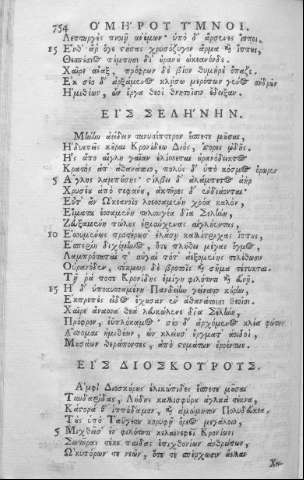 754 ὉΜΗΡΟΥ ὝΜΝΟΙ.
Λεπτουργὲς πνοιῇ ἀνέμων· ὑπὸ δ' ἄρσενες ἵπποι.
15 Ἔνθ' ἂρ ὅγε στήσας χρυσόζυγον ἅρμα καὶ ἵππους,
Θεσπέσιος πέμπῃσι δι' οὐρανοῦ ὠκεανόνδε.
Χαῖρε ἄναξ, πρόφρων δὲ βίον θυμήρε' ὄπαζε.
Ἐκ σέο δ' ἀρξάμενος κλῄσω μερόπων γένος ἀνδρῶν
Ἡμιθέων, ὧν ἔργα θεοὶ θνητοῖσιν ἔδειξαν.
ΕΙΣ ΣΕΛΗΝΗΝ.
Μήνην ἀείδειν τανυσίπτερον ἔσπετε μοῦσαι,
Ἡδυεπεῖς κοῦραι Κρονίδεω Διὸς, ἵστορες ᾠδῆς,
Ἧς ἄπο αἴγλη γαῖαν ἑλίσσεται οὐρανόδεικτος
Κρατὸς ἀπ' ἀθανάτοιο, πολὺς δ' ὑπὸ κόσμος ὄρωρεν
5 Αἴγλης λαμπούσης· στίλβει δ' ἀλάμπετος ἀὴρ
Χρυσέου ἀπὸ στεφάνου, ἀκτῆρες δ' ἐνδιάονται
Εὖτ' ἂν Ὠκεανοῖο λοεσσαμένη χρόα καλὸν,
Εἵματα ἑσσαμένη τηλαυγέα δῖα Σελήνη,
Ζευξαμένη πώλους ἐριαύχενας αἰγλήεντας,
10 Ἐσσυμένως προτέρωσ' ἐλάσῃ καλλίτριχας ἵππους,
Ἑσπερίη διχόμηνος, ὅτε πλήθει μέγας ὄγμος,
Λαμπρόταταί τ' αὐγαὶ τότ' ἀεξομένης τελέθουσιν
Οὐρανόθεν, τέκμωρ δὲ βροτοῖς καὶ σῆμα τέτυκται.
Τῇ ῥά ποτε Κρονίδης ἐμίγη φιλότητι καὶ εὐνῇ,
15 Ἡ δ' ὑποκυσσαμένη Πανδείην γείνατο κούρην,
Ἐκπρεπὲς εἶδος ἔχουσαν ἐν ἀθανάτοισι θεοῖσι.
Χαῖρε ἄνασσα θεὰ λευκώλενε δῖα Σελήνη,
Πρόφρον, ἐυπλόκαμος· σέο δ' ἀρχόμενος κλέα φωτῶν
Ἄσομαι ἡμιθέων, ὧν κλείουσ' ἔργματ' ἀοιδοὶ,
Μουσάων θεράποντες, ἀπὸ στομάτων ἐροέντων.
ΕΙΣ ΔΙΟΣΚΟΥΡΟΥΣ.
Ἀμφὶ Διοσκούρους ἑλικώπιδες ἔσπετε μοῦσαι
Τυνδαρίδας, Λήδης καλλισφύρου ἀγλαὰ τέκνα,
Κάστορά θ' ἱππόδαμον, καὶ ἀμώμητον Πολυδεύκεα.
Τοὺς ὑπὸ Ταϋγέτου κορυφῇ ὄρεος μεγάλοιο,
5 Μιχθεῖσ' ἐν φιλότητι κελαινεφέϊ Κρονίωνι
Σωτῆρας τέκε παῖδας ἐπιχθονίων ἀνθρώπων,
Ὠκυπόρων τε νεῶν, ὅτε τε σπέρχωσιν ἄελλαι
Χει-